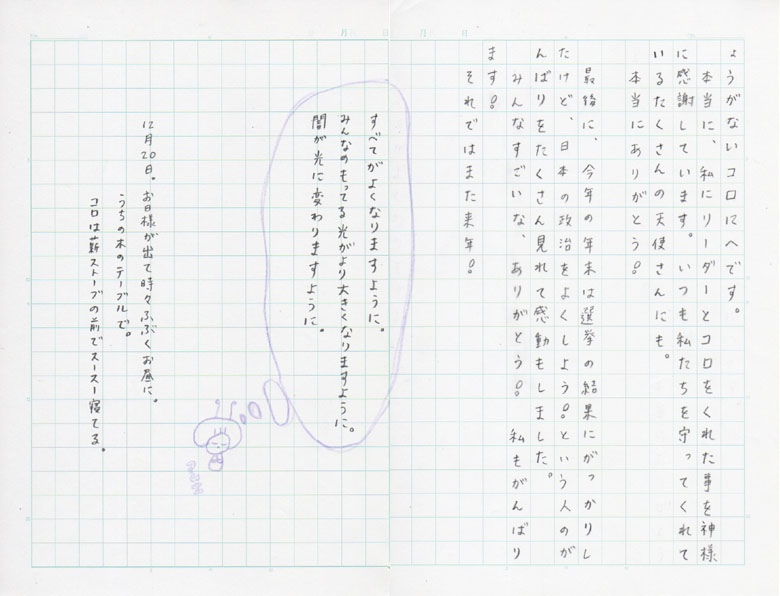 ょうがないコロにへです。
本当に、私にリーダーとコロをくれた事を神様
に感謝しています。いつも私たちを守ってくれて
いるたくさんの天使さんにも。
本当にありがとう!!
最後に、今年の年末は選挙の結果にがっかりし
たけど、日本の政治をよくしよう!!という人のが
んばりをたくさん見れて感動もしました。
みんなすごいな、ありがとう!!私もがんばり
ます!!
それではまた来年!!
すべてがよくなりますように。
みんなのもってる光がより大きくなりますように。
闇が光に変わりますように。
12月20日。お日様が出て時々ふぶくお昼に。
うちの木のテーブルで。
コロは薪ストーブの前でスースー寝てる。